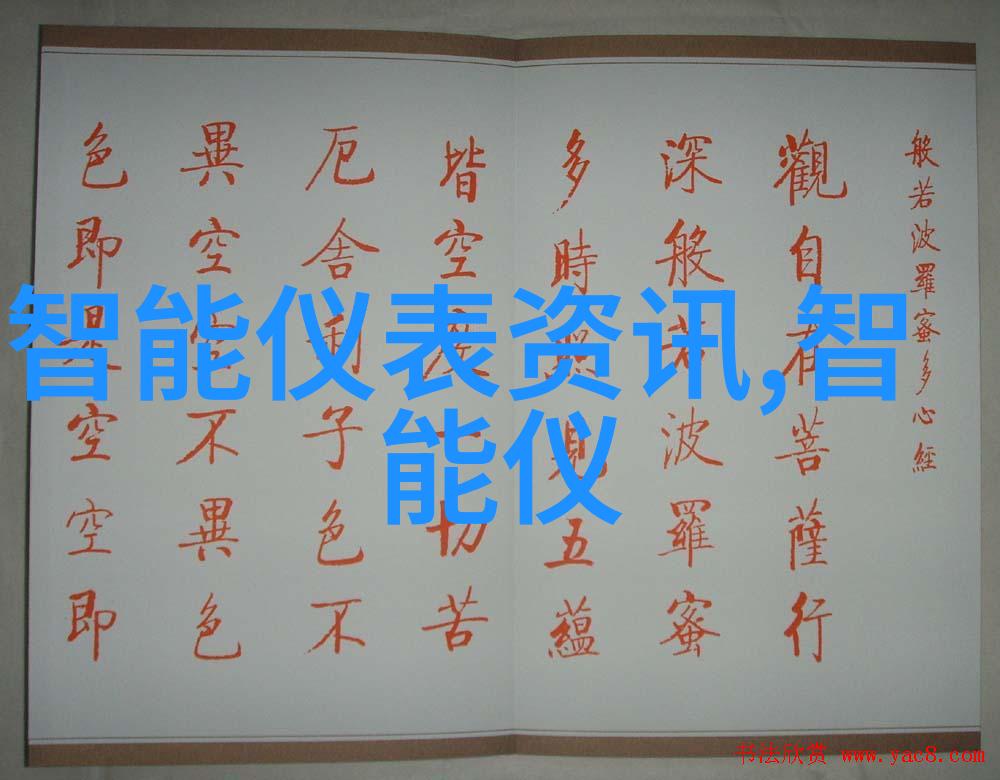 般若波羅蜜多心經
觀自在菩薩行
深般若波羅蜜
多時照見五蘊
皆空度一切苦
厄舍利子色不
異空空不異色
色即是空空即
智能仪表资讯,智
能仪
书法欣赏 www.yac8.com